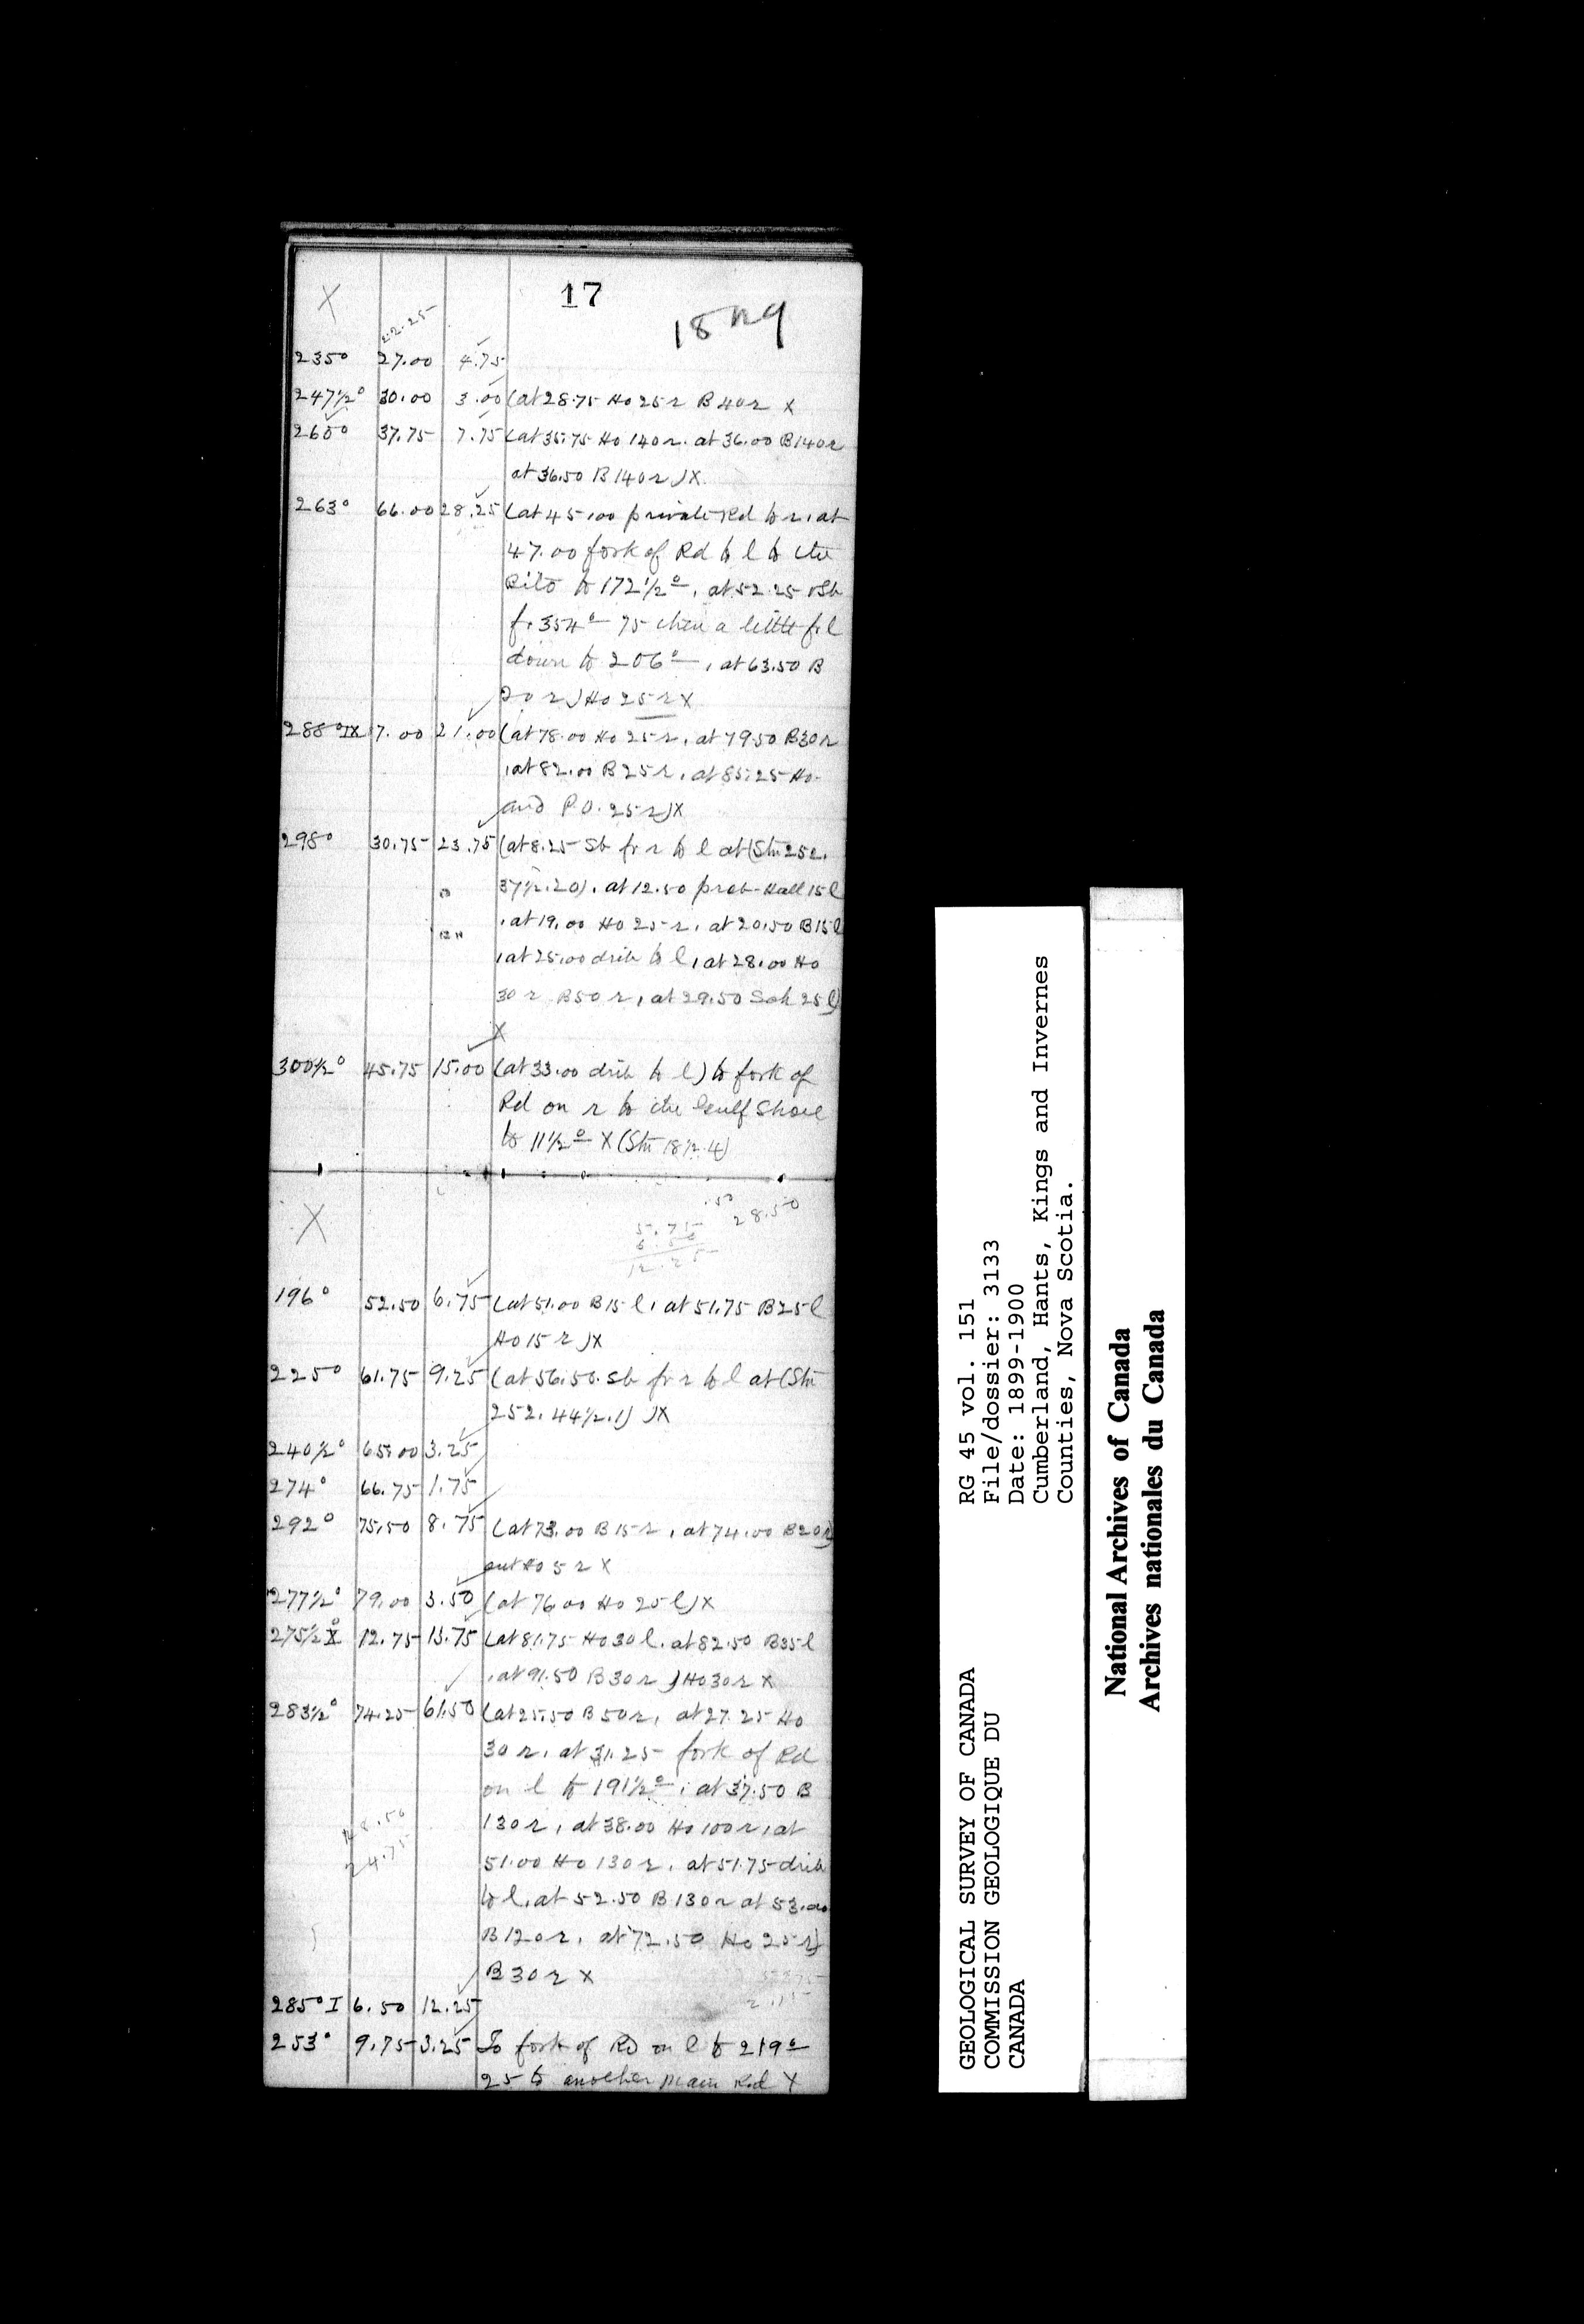 17
X
22.25
235° 27.00 4.75
247½° 30.00 3.00 (at 28.75 Ho 25 r B 40 r X
260° 37.75 7.75 (at 35.75 Ho 140 r. at 36.00 B 140 r
at 36.50 B 140 r) X
263° 66.00 28.25 (at 45.00 private Rd to r, at
47.00 fork of Rd to l to the
to 172½°, at 52.25 Sb
f. 354° 75 then a little f. l
down to 206°, at 63.50 B
20 r) Ho 25 r X
288° IX 7.00 21.00 (at 78.00 Ho 25 r, at 79.50 B 30 r
, at 82.00 B 25 r, at 85.25 Ho
and P.O. 25 r) X
298° 30.75 23.75 (at 8.25 Sb fr r to l at (Stn 252.
37½.20), at 12.50 prob. Hall 15 l
, at 19.00 Ho 25 r, at 20.50 B 15 l
, at 25.00 drib to l, at 28.00 Ho
30 r B 50 r, at 29.50 Sch 25 l)
X
300½° 45.75 15.00 (at 33.00 drib to l) to fork of
Rd on r to the Gulf Shore
to 11½° X (Stn 18½.4)
X
.50
5.75 28.50
6.50
12.25
196° 52.50 6.75 (at 51.00 B 15 l, at 51.75 B 25 l
Ho 15 r) X
225° 61.75 9.25 (at 56.50 Sb fr r to l at (Stn
252. 44½.1)) X
240½° 65.00 3.25
274° 66.75 1.75
292° 75.50 8.75 (at 73.00 B 15 r, at 74.00 B 20 r)
out Ho 5 r X
277½° 79.00 3.50 (at 76.00 Ho 25 l) X
275½° X 12.75 13.75 (at 81.75 Ho 30 l, at 82.50 B 35 l
, at 91.50 B 30 r) Ho 30 r X
283½° 74.25 61.50 (at 25.50 B 50 r, at 27.25 Ho
30 r, at 31.25 fork of Rd
on l to 191½°, at 37.50 B
130 r, at 38.00 Ho 100 r, at
51.00 Ho 130 r, at 51.75 drib
to l, at 52.50 B 130 r at 53.00
B 120 r, at 72.50 Ho 25 r)
B 30 r X
24.75
285° I 6.50 12.25
253° 9.75 3.25 To fork of Rd on l to 219°
25 to another main Rd X
GEOLOGICAL SURVEY OF CANADA
COMMISSION GEOLOGIQUE DU
CANADA
RG 45 vol. 151
File/dossier: 3133
Date: 1899-1900
Cumberland, Hants, Kings and Invernes
Counties, Nova Scotia.
National Archives of Canada
Archives nationales du Canada